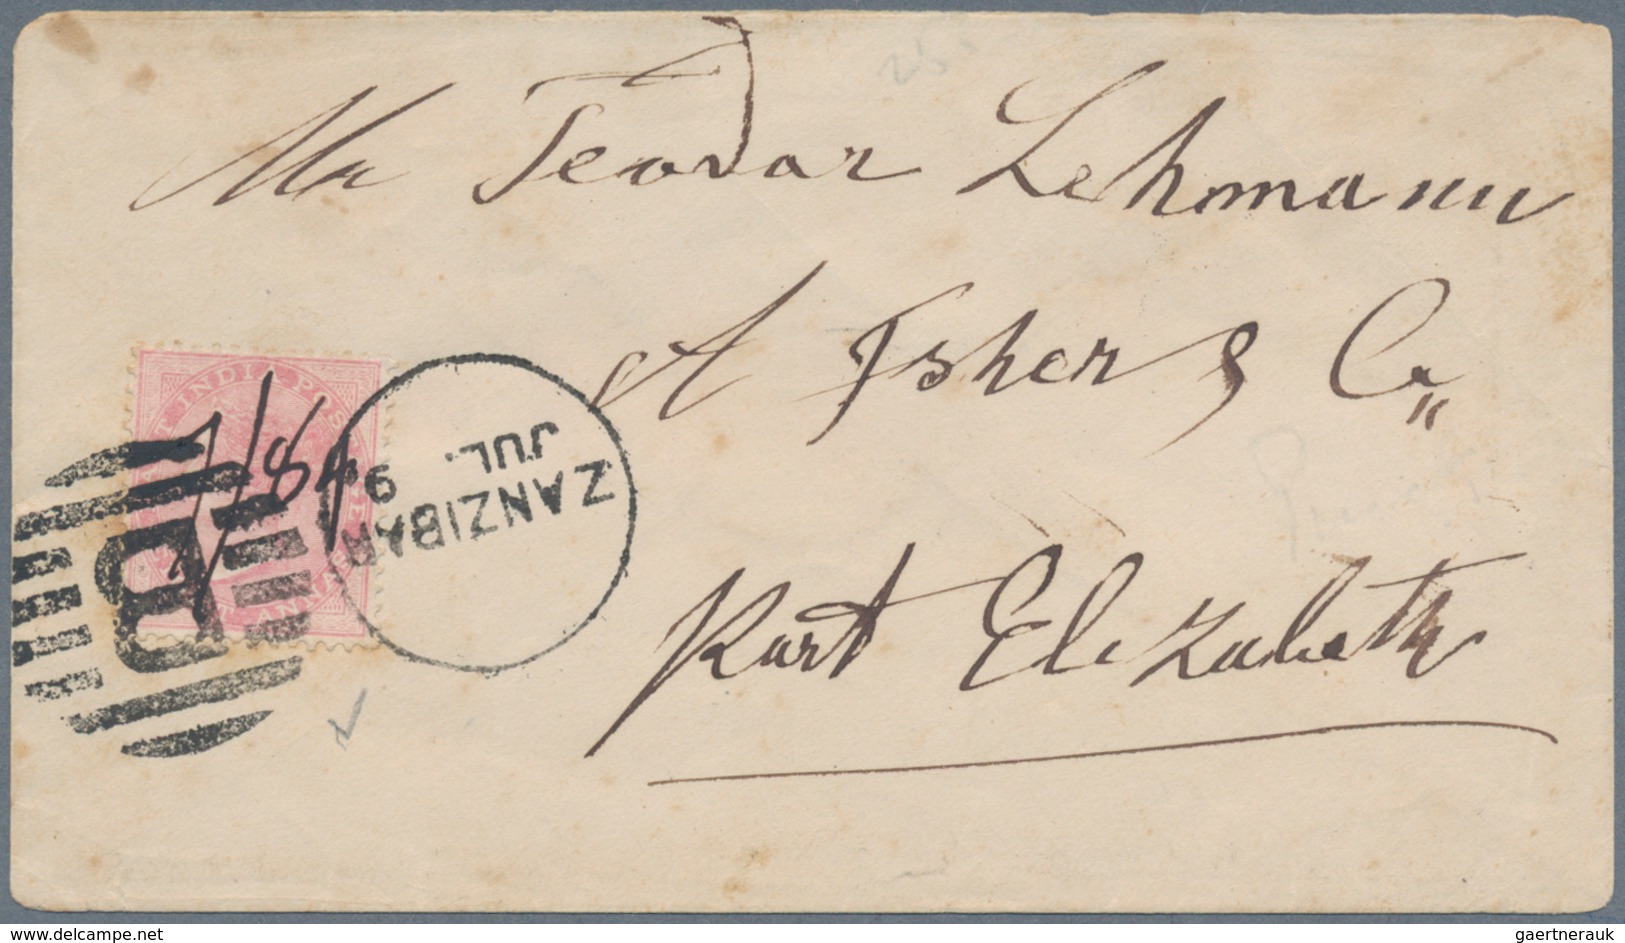 Mr Teodor Lehmann
A Fsher & Co
Port Elizabeth
EAST INDIA POSTAGE
EIGHT ANNAS
9/7/84
B
ZANZIBAR
JUL. 9
www.delcampe.net
gaertnerauk